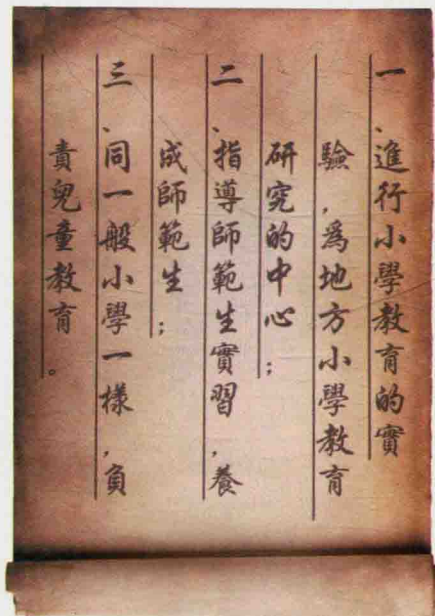 一、進行小學教育的實
驗，爲地方小學教育
研究的中心；
二、指導師範生實習，養
成師範生；
三、同一般小學一樣，負
責兒童教育。